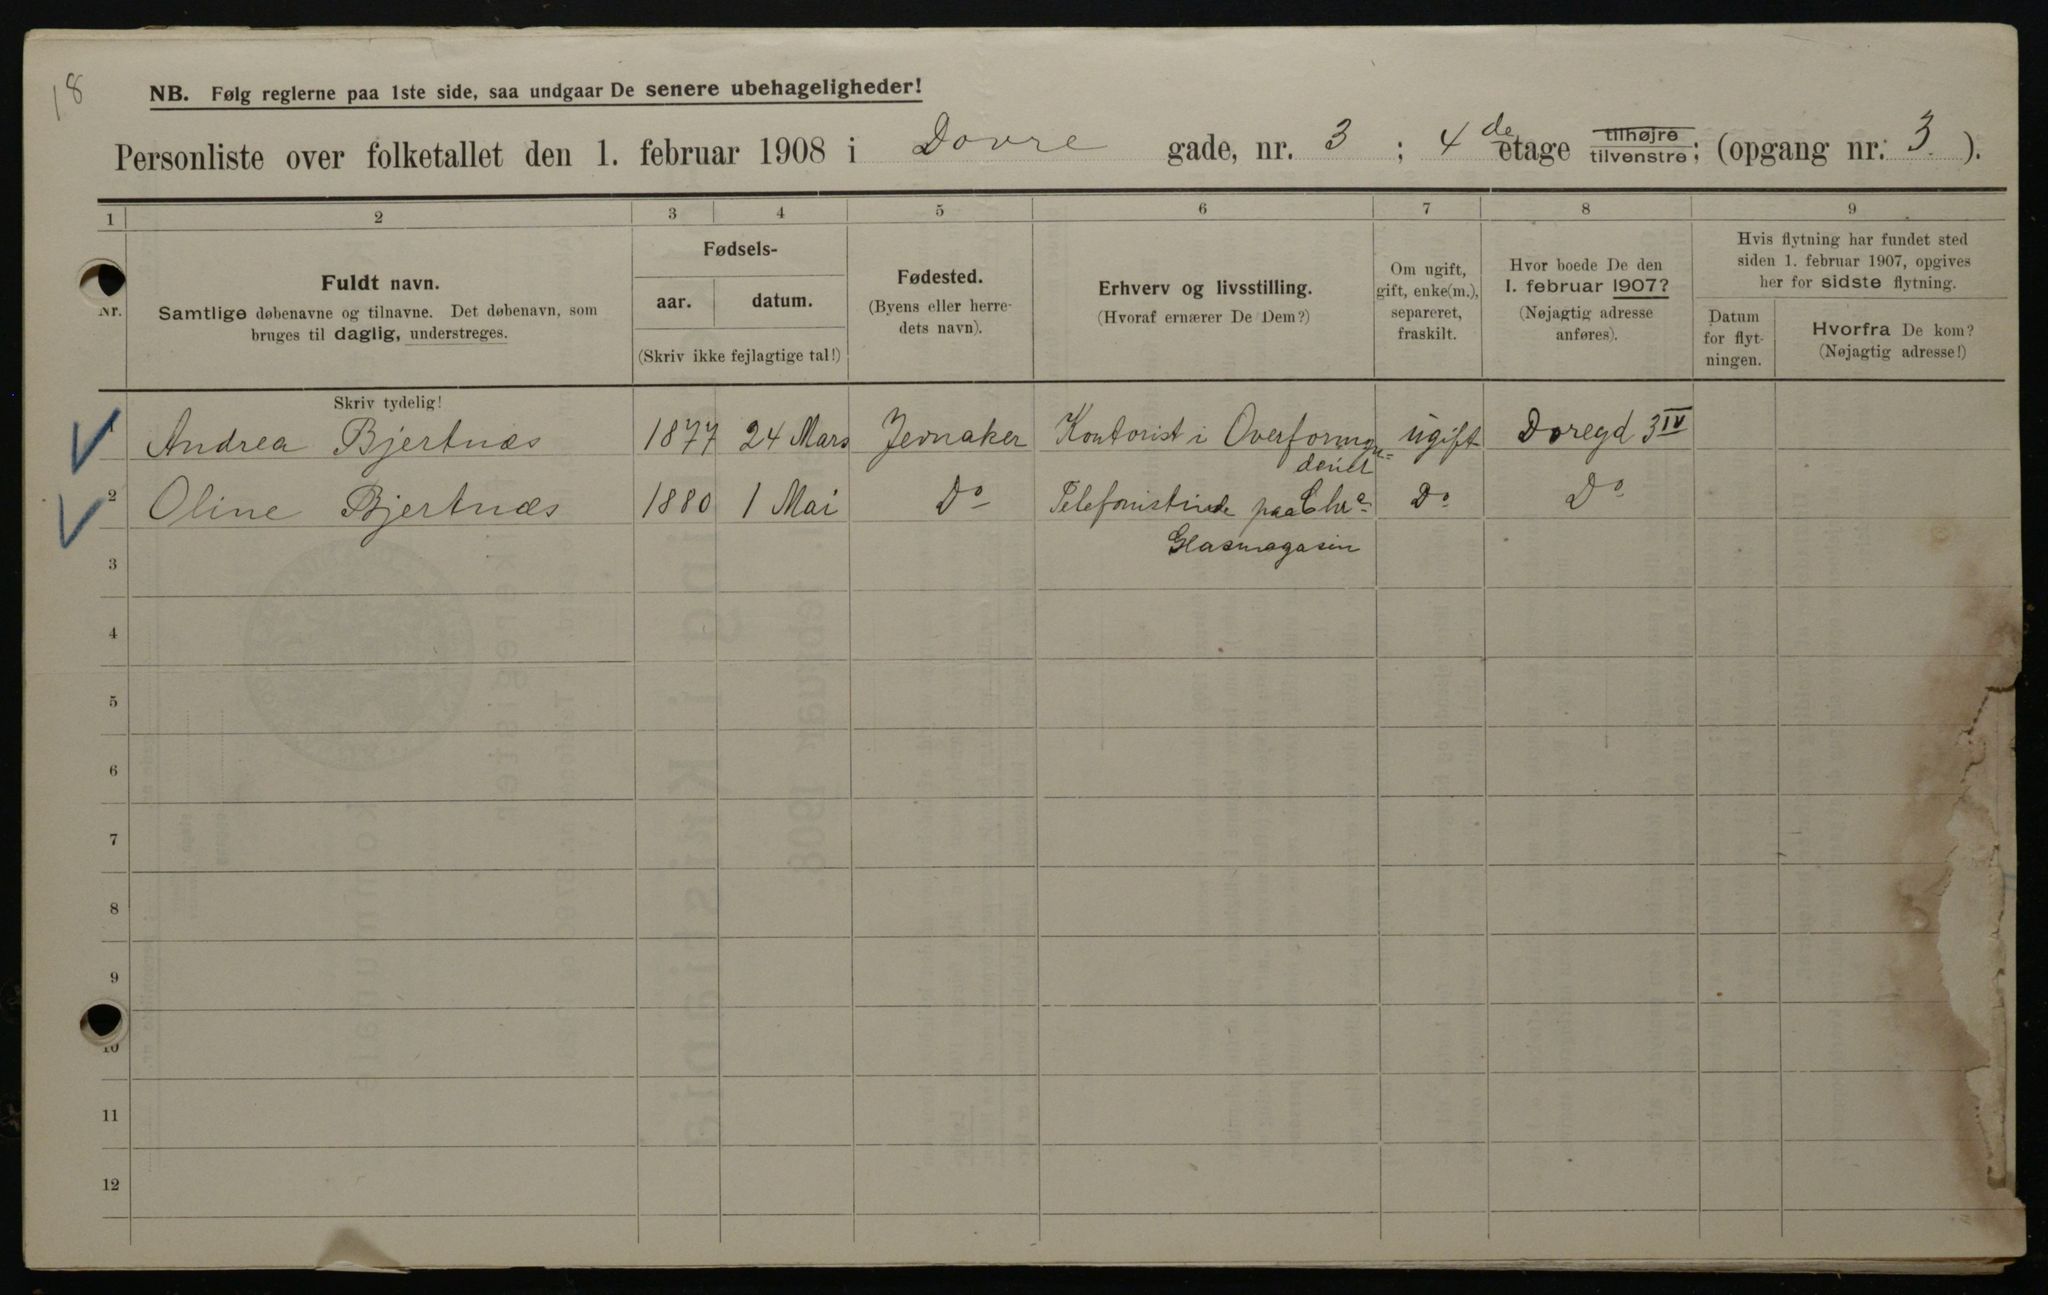 18
NB. Følg reglerne paa 1ste side, saa undgaar De senere ubehageligheder!
Personliste over folketallet den 1. februar 1908 i Dovre gade, nr. 3 ; 4de etage tilhøjre tilvenstre; (opgang nr. 3 ).
1 2 3 4 5 6 7 8 9
Nr.
Fuldt navn.
Samtlige døbenavne og tilnavne. Det døbenavn, som
bruges til daglig, understreges.
Fødsels-
aar. datum.
(Skriv ikke fejlagtige tal!)
Fødested.
(Byens eller herre-
dets navn).
Erhverv og livsstilling.
(Hvoraf ernærer De Dem?)
Om ugift,
gift, enke(m.),
separeret,
fraskilt.
Hvor boede De den
1. februar 1907?
(Nøjagtig adresse
anføres).
Hvis flytning har fundet sted
siden 1. februar 1907, opgives
her for sidste flytning.
Datum
for flyt-
ningen.
Hvorfra De kom?
(Nøjagtig adresse!)
Skriv tydelig!
1 Andrea Bjertnæs 1877 24 Mars Jevnaker Kontorist i Overformyn= ugift Dovregd 3 IV
deriet
2 Oline Bjertnæs 1880 1 Mai Do Telefonistinde paa Chr.a Do Do
Glasmagasin
3
4
5
6
7
8
9
10
11
12